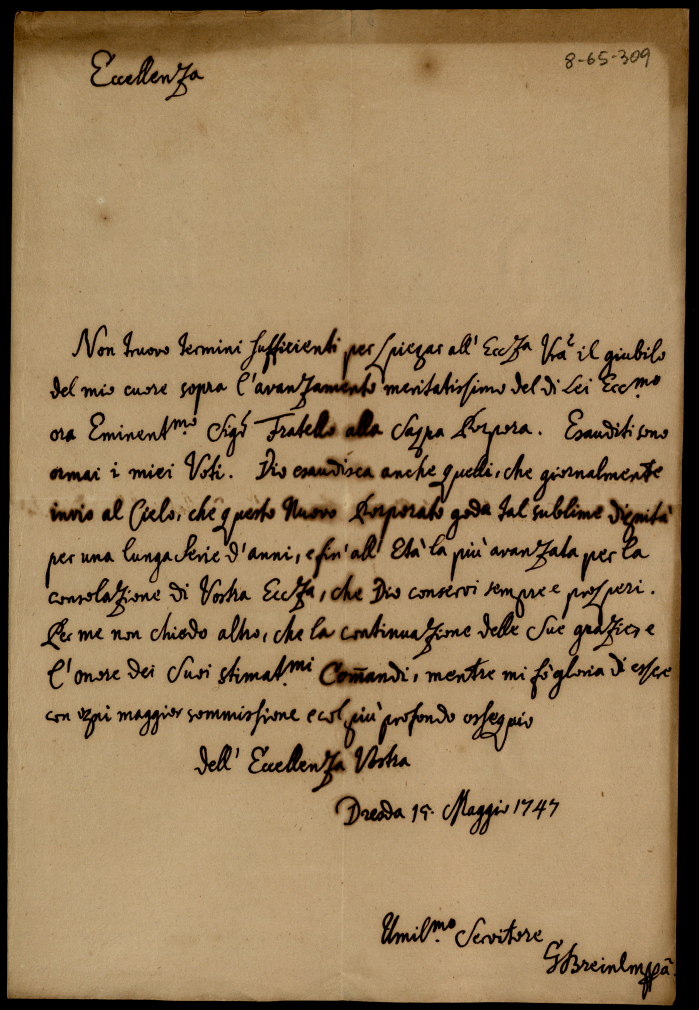 8-65-309
Eccellenza
Non truovo termini sufficienti per spiegar all' Ecc͞za Vrã il giubilo
del mio cuore sopra l'avanzamento meritatissimo del di Lei Ecc.mo
ora Eminent.mo Sigr Fratello alla Sagra Porpora. Esauditi sono
ormai i miei Voti. Dio esaudisca anche quelli, che giornalmente
invio al Cielo, che questo Nuovo Porporato goda tal sublime dignità
per una lunga serie d'anni, e fin' all' Età la più avanzata per la
consolazione di Vostra Ecc͞za, che Dio conservi sempre e prosperi.
Per me non chiedo altro, che la continuazione delle Sue grazie, e
l'onore dei Suoi stimat.mi Com̃andi, mentre mi fò gloria di essere
con ogni maggior sommissione e col più profondo ossequio
dell' Eccellenza Vostra
Dresda 15. Maggio 1747
Umil.mo Servitore